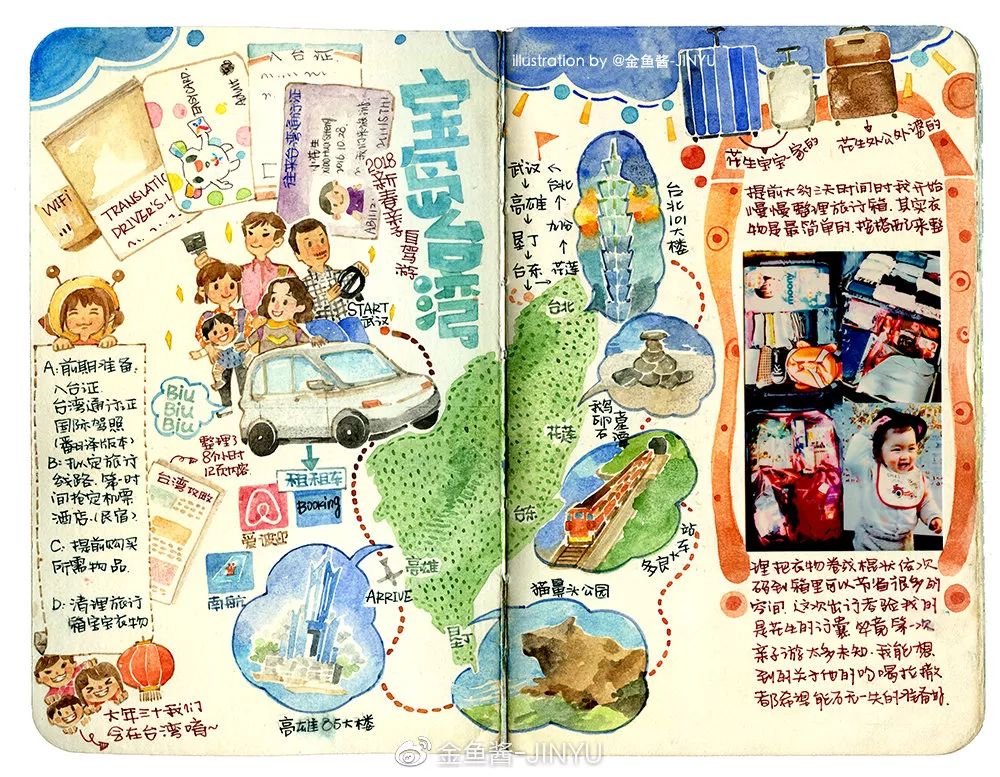 illustration by @金鱼酱-JINYU
入台证
POSTCARD
ADMIT
往来台湾通行证
小花生
WIFI
TRANSLATIC
DRIVER'S.L
宝岛台湾
2018
新春亲子
自驾游
START
武汉
A:前期准备.
入台证.
台湾通行证
国际驾照
(翻译版本)
B:拟定旅行
线路.第一时
间抢定机票
酒店.(民宿)
C:提前购买
所需物品.
D:清理旅行
箱宝宝衣物
Biu
Biu
Biu
整理了
8个小时
12页内容
台湾攻略
租租车
Booking
爱彼迎
南航
ARRIVE
高雄
垦丁
高雄85大楼
大年三十我们
会在台湾唷~
武汉
高雄
垦丁
台东
台北
花莲
台北101大楼
台北
花莲
台东
鹅卵石
多良火车站
猫鼻头公园
花生宝宝一家的
花生外公外婆的
提前大约3天时间时我开始
慢慢整理旅行箱.其实衣
物是最简单的.按搭配来整
理把衣物卷成棍状依次
码到箱里可以节省很多的
空间.这次出行考验我的
是花生的行囊.毕竟第一次
亲子游太多未知.我能想
到的关于他的吃喝拉撒
都希望能万无一失的准备好.
金鱼酱-JINYU